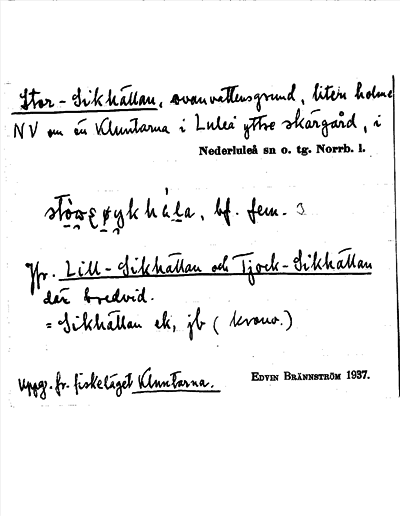 Stor-Sikhällan, ovanvattensgrund, liten holme
NV om ön Kluntarna i Luleå yttre skärgård, i
Nederluleå sn o. tg. Norrb. l.
bf. fem. 3
Jfr. Lill-Sikhällan och Tjock-Sikhällan
där bredvid.
= Sikhällan ek, jb (krono.)
Uppg. fr. fiskeläget Kluntarna.
EDVIN BRÄNNSTRÖM 1937.